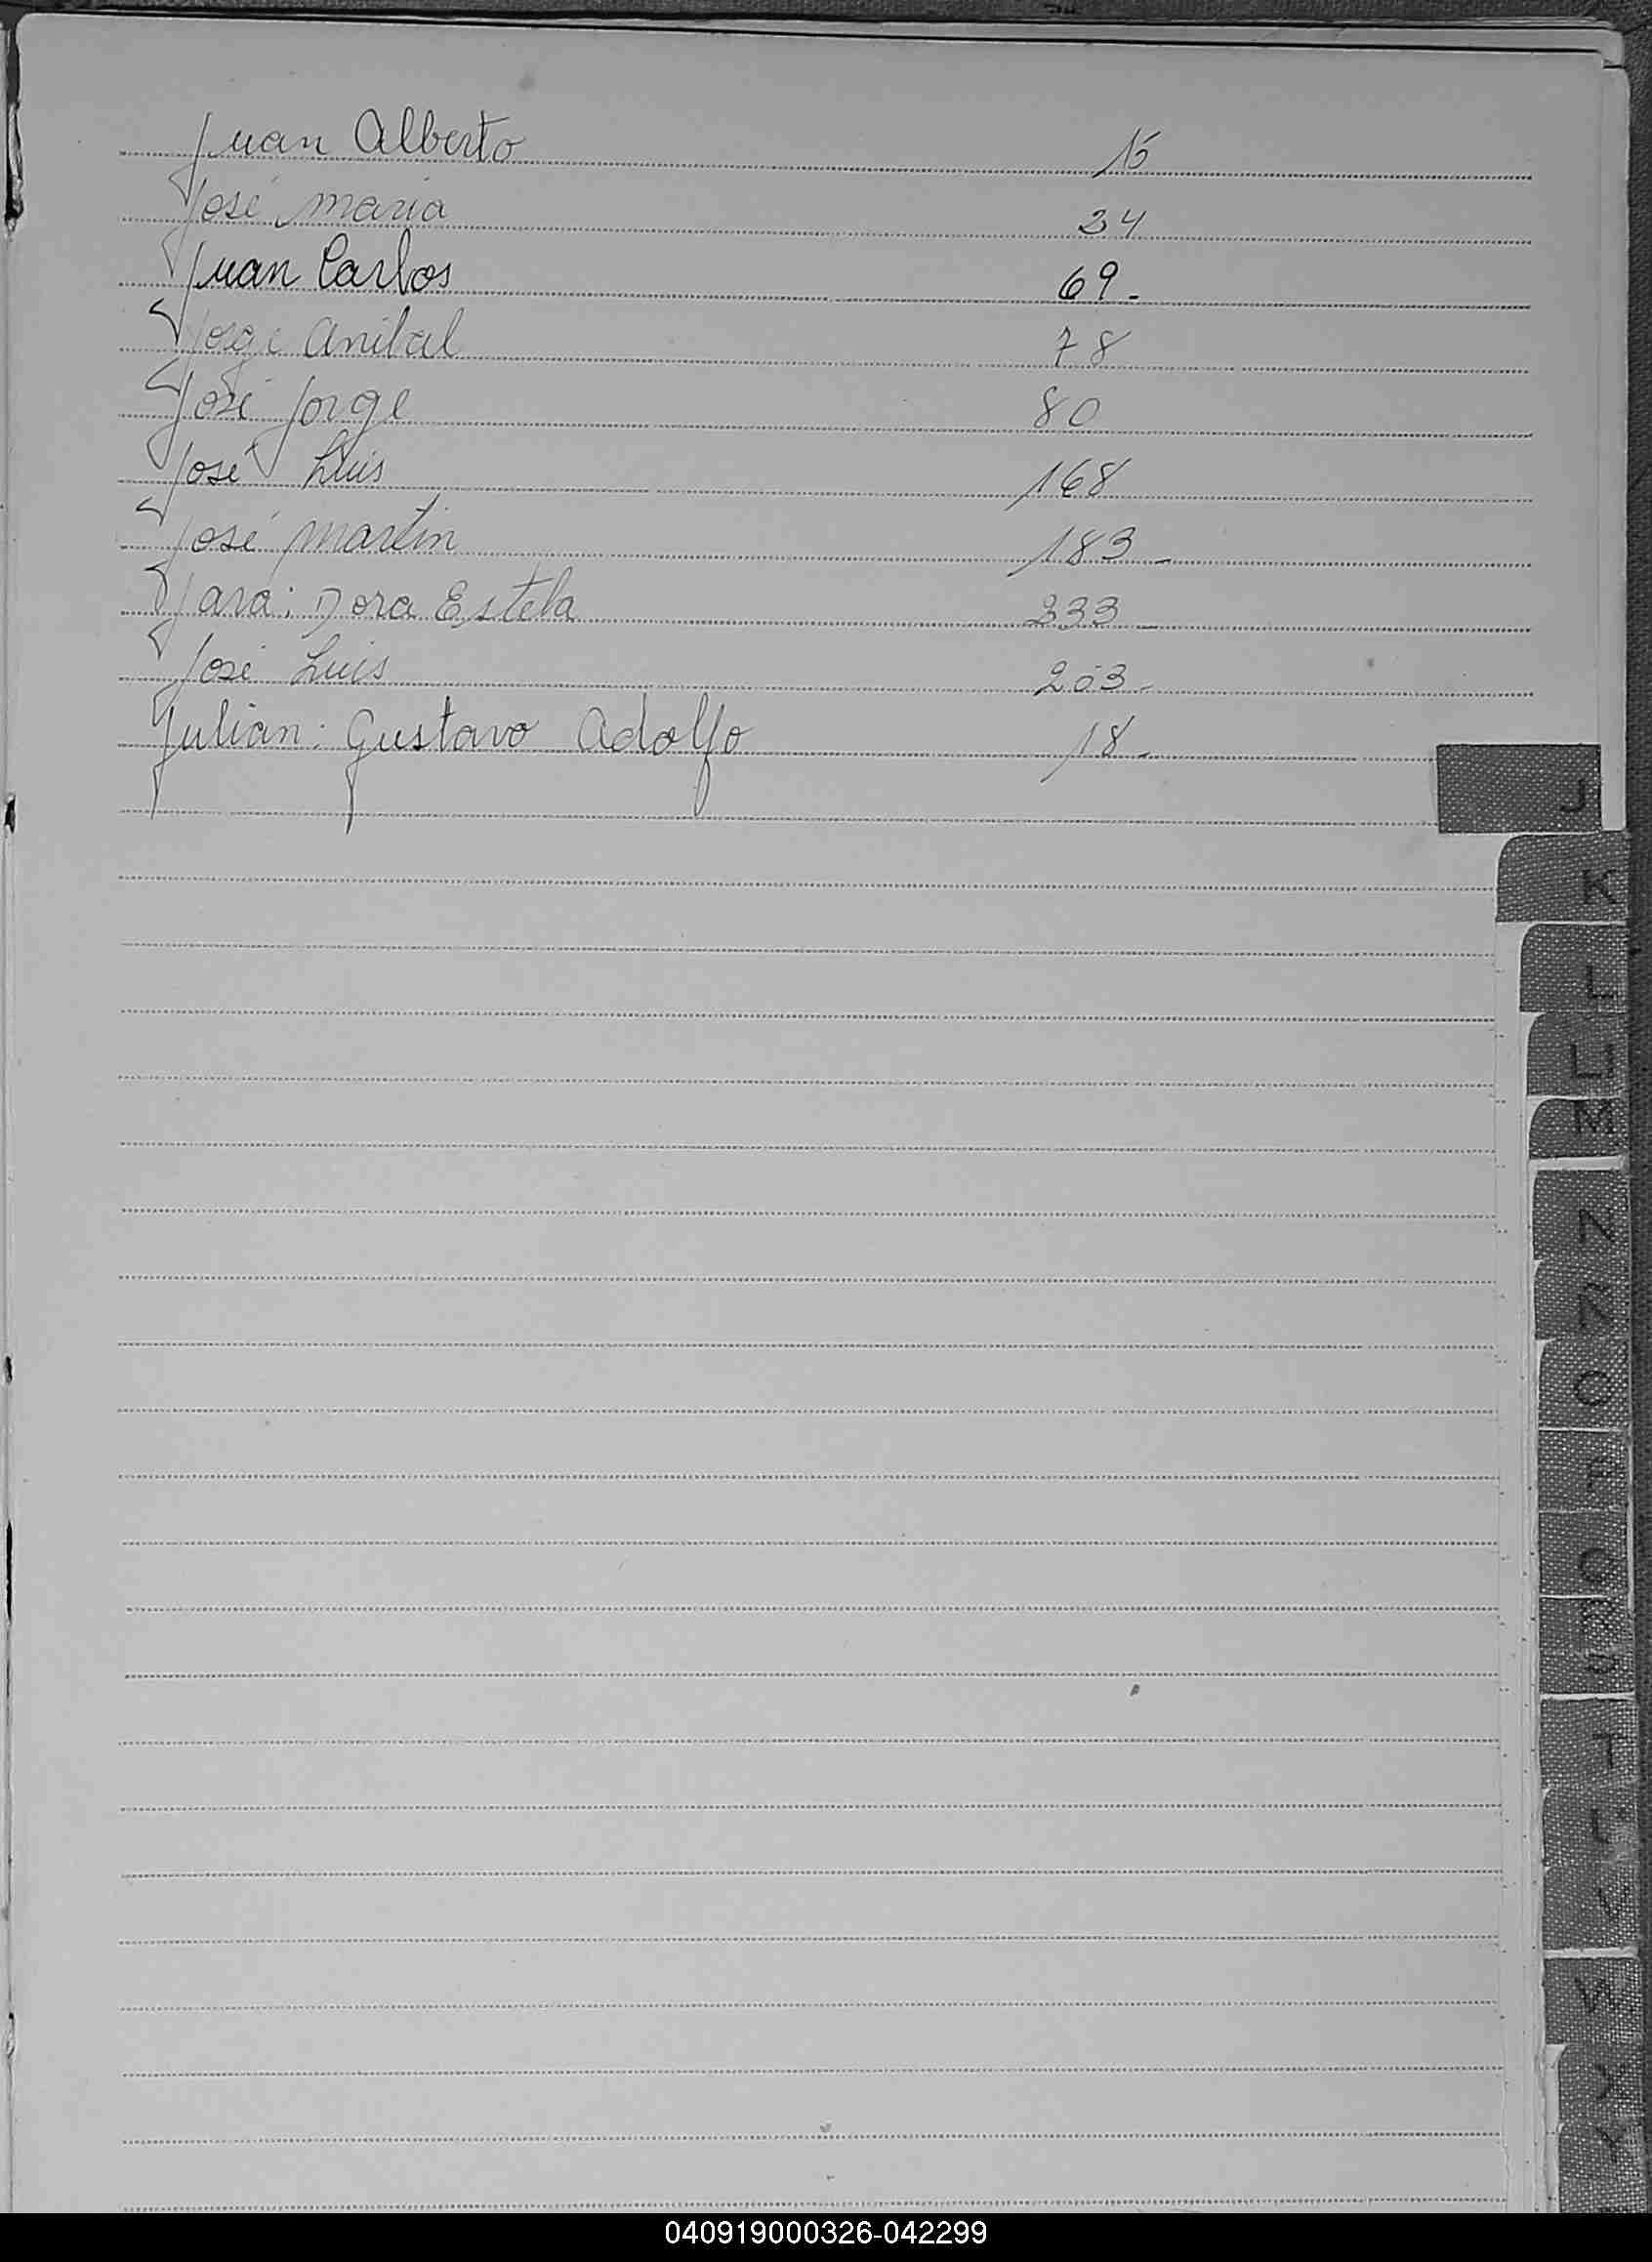 Juan Alberto 15
José Maria 34
Juan Carlos 69-
Jorge Anibal 78
José Jorge 80
José Luis 168
José Martin 183-
Jara: Dora Estela 233-
José Luis 203-
Julian: Gustavo Adolfo 18-
J
K
L
LL
M
N
Ñ
O
P
Q
R
S
T
U
V
W
X
Y
040919000326-042299